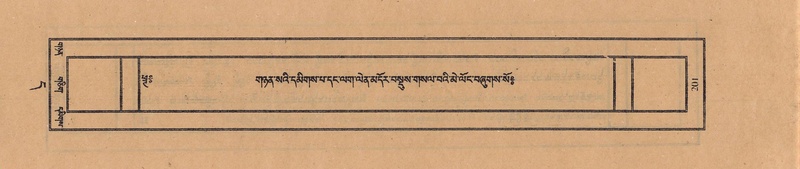 གཉན་སའི་དམིགས་པ་དང་ལག་ལེན་མདོར་བསྡུས་གསལ་བའི་མེ་ལོང་བཞུགས་སོ༔
201